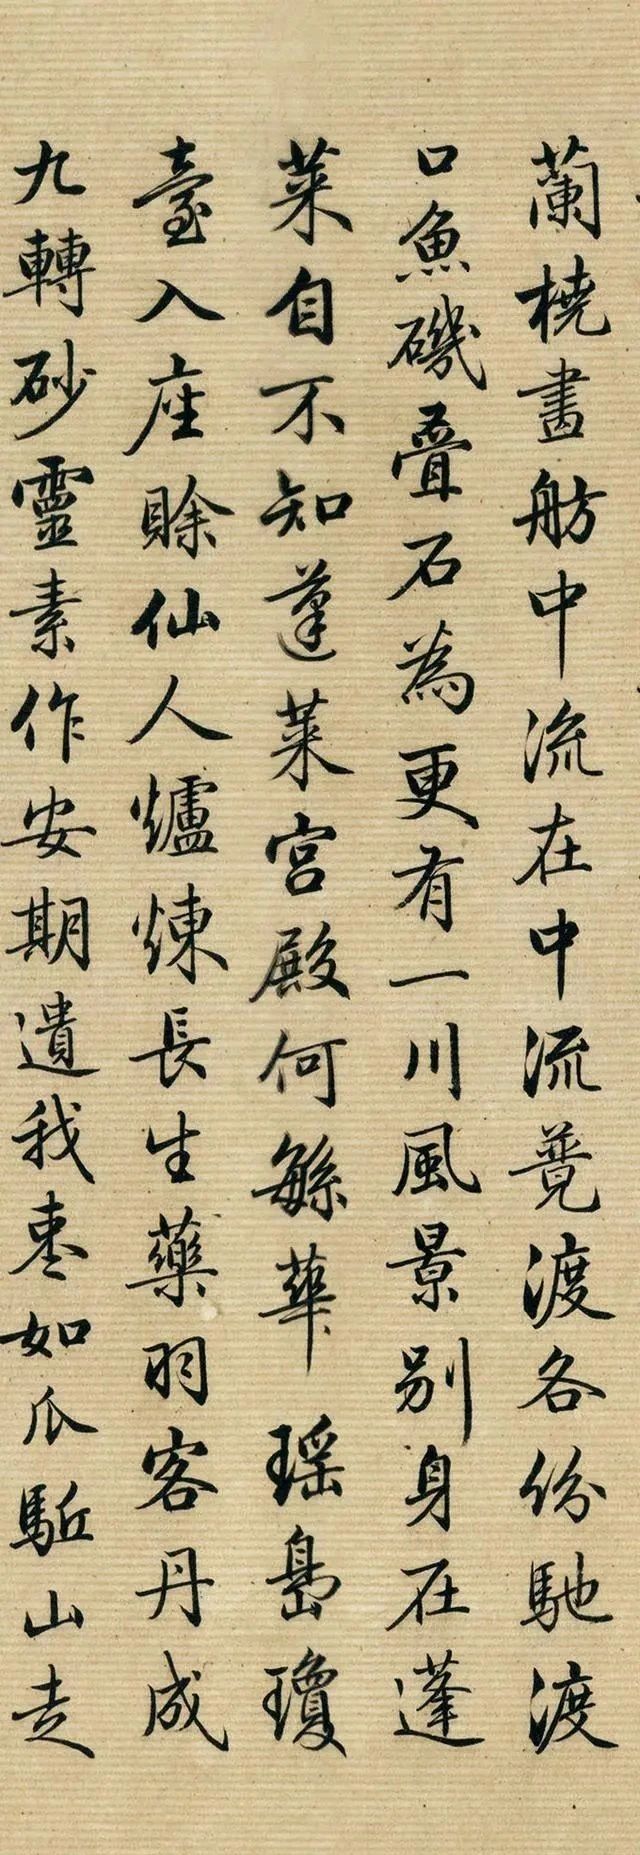 蘭橈畫舫中流在中流競渡各份馳渡
口魚磯疊石為更有一川風景別身在蓬
萊自不知蓬萊宮殿何繁華瑤島瓊
臺入座賒仙人爐煉長生藥羽客丹成
九轉砂靈素作安期遺我棗如瓜駈山走